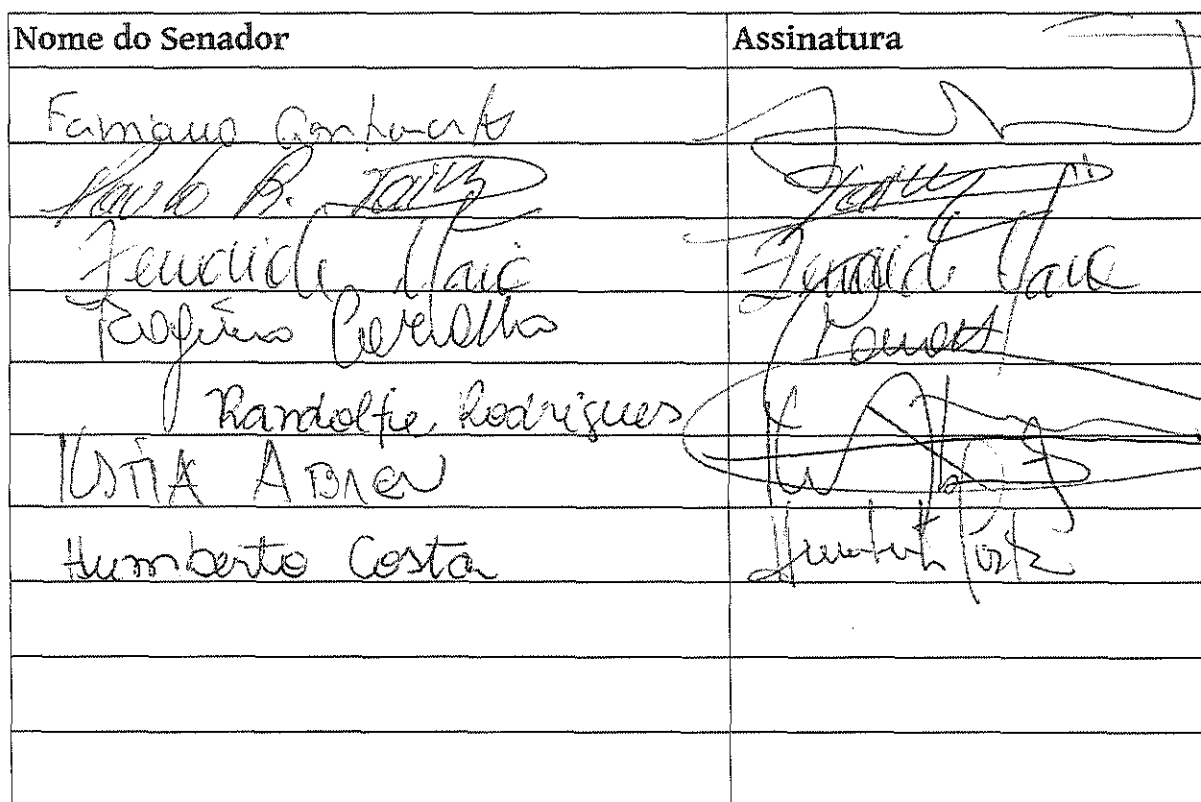 Nome do Senador Assinatura
Fabiano Contarato
Paulo R. Paim Paim
Zenaide Maia Zenaide Maia
Rogério Carvalho
Randolfe Rodrigues
KÁTIA ABREU
Humberto Costa Humberto Costa